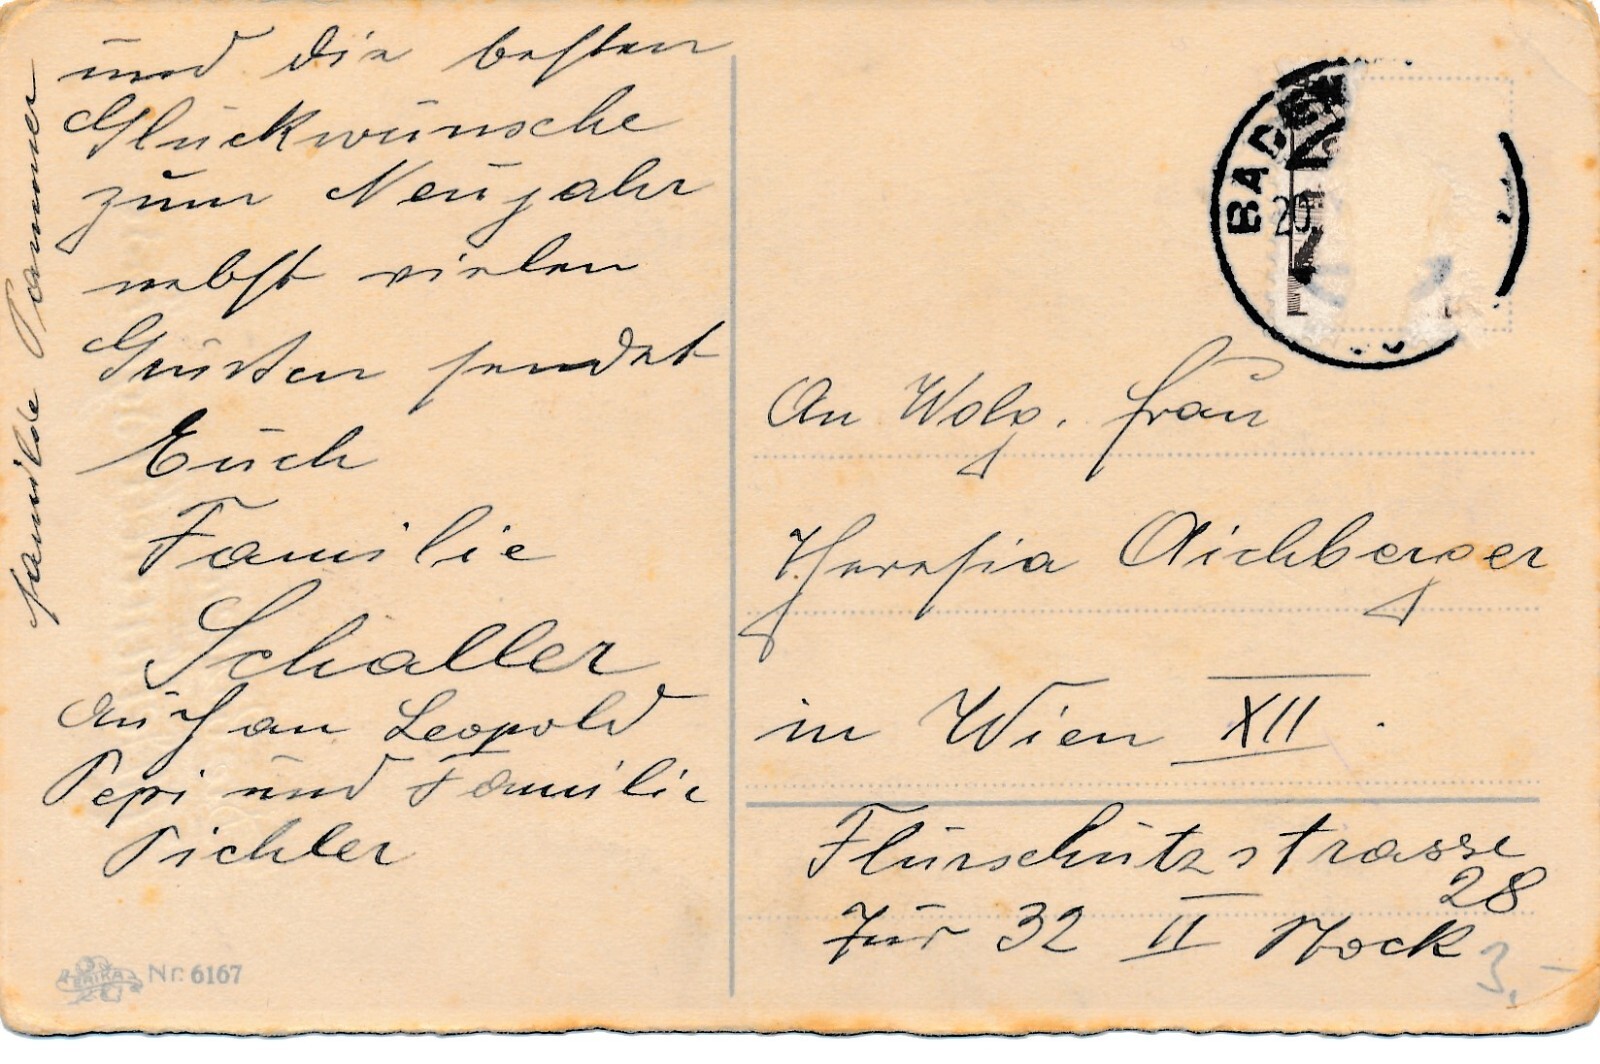 und die besten
Glückwünsche
zum Neujahr
nebst vielen
Grüssen sendet
Euch
Familie
Schaller
Auch an Leopold
Pepi und Familie
Pichler
BADEN
20
An Wolg. Frau
Theresia Aichberger
in Wien XII.
Flurschützstrasse
28
Tür 32 II Stock
3.-
ERIKA Nr. 6167